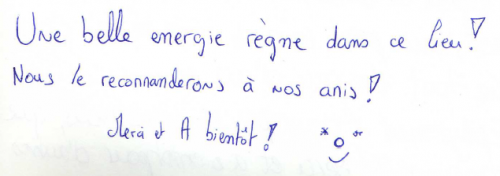 Une belle energie règne dans ce lieu!
Nous le reconnanderons à nos amis!
Merci et A bientôt!